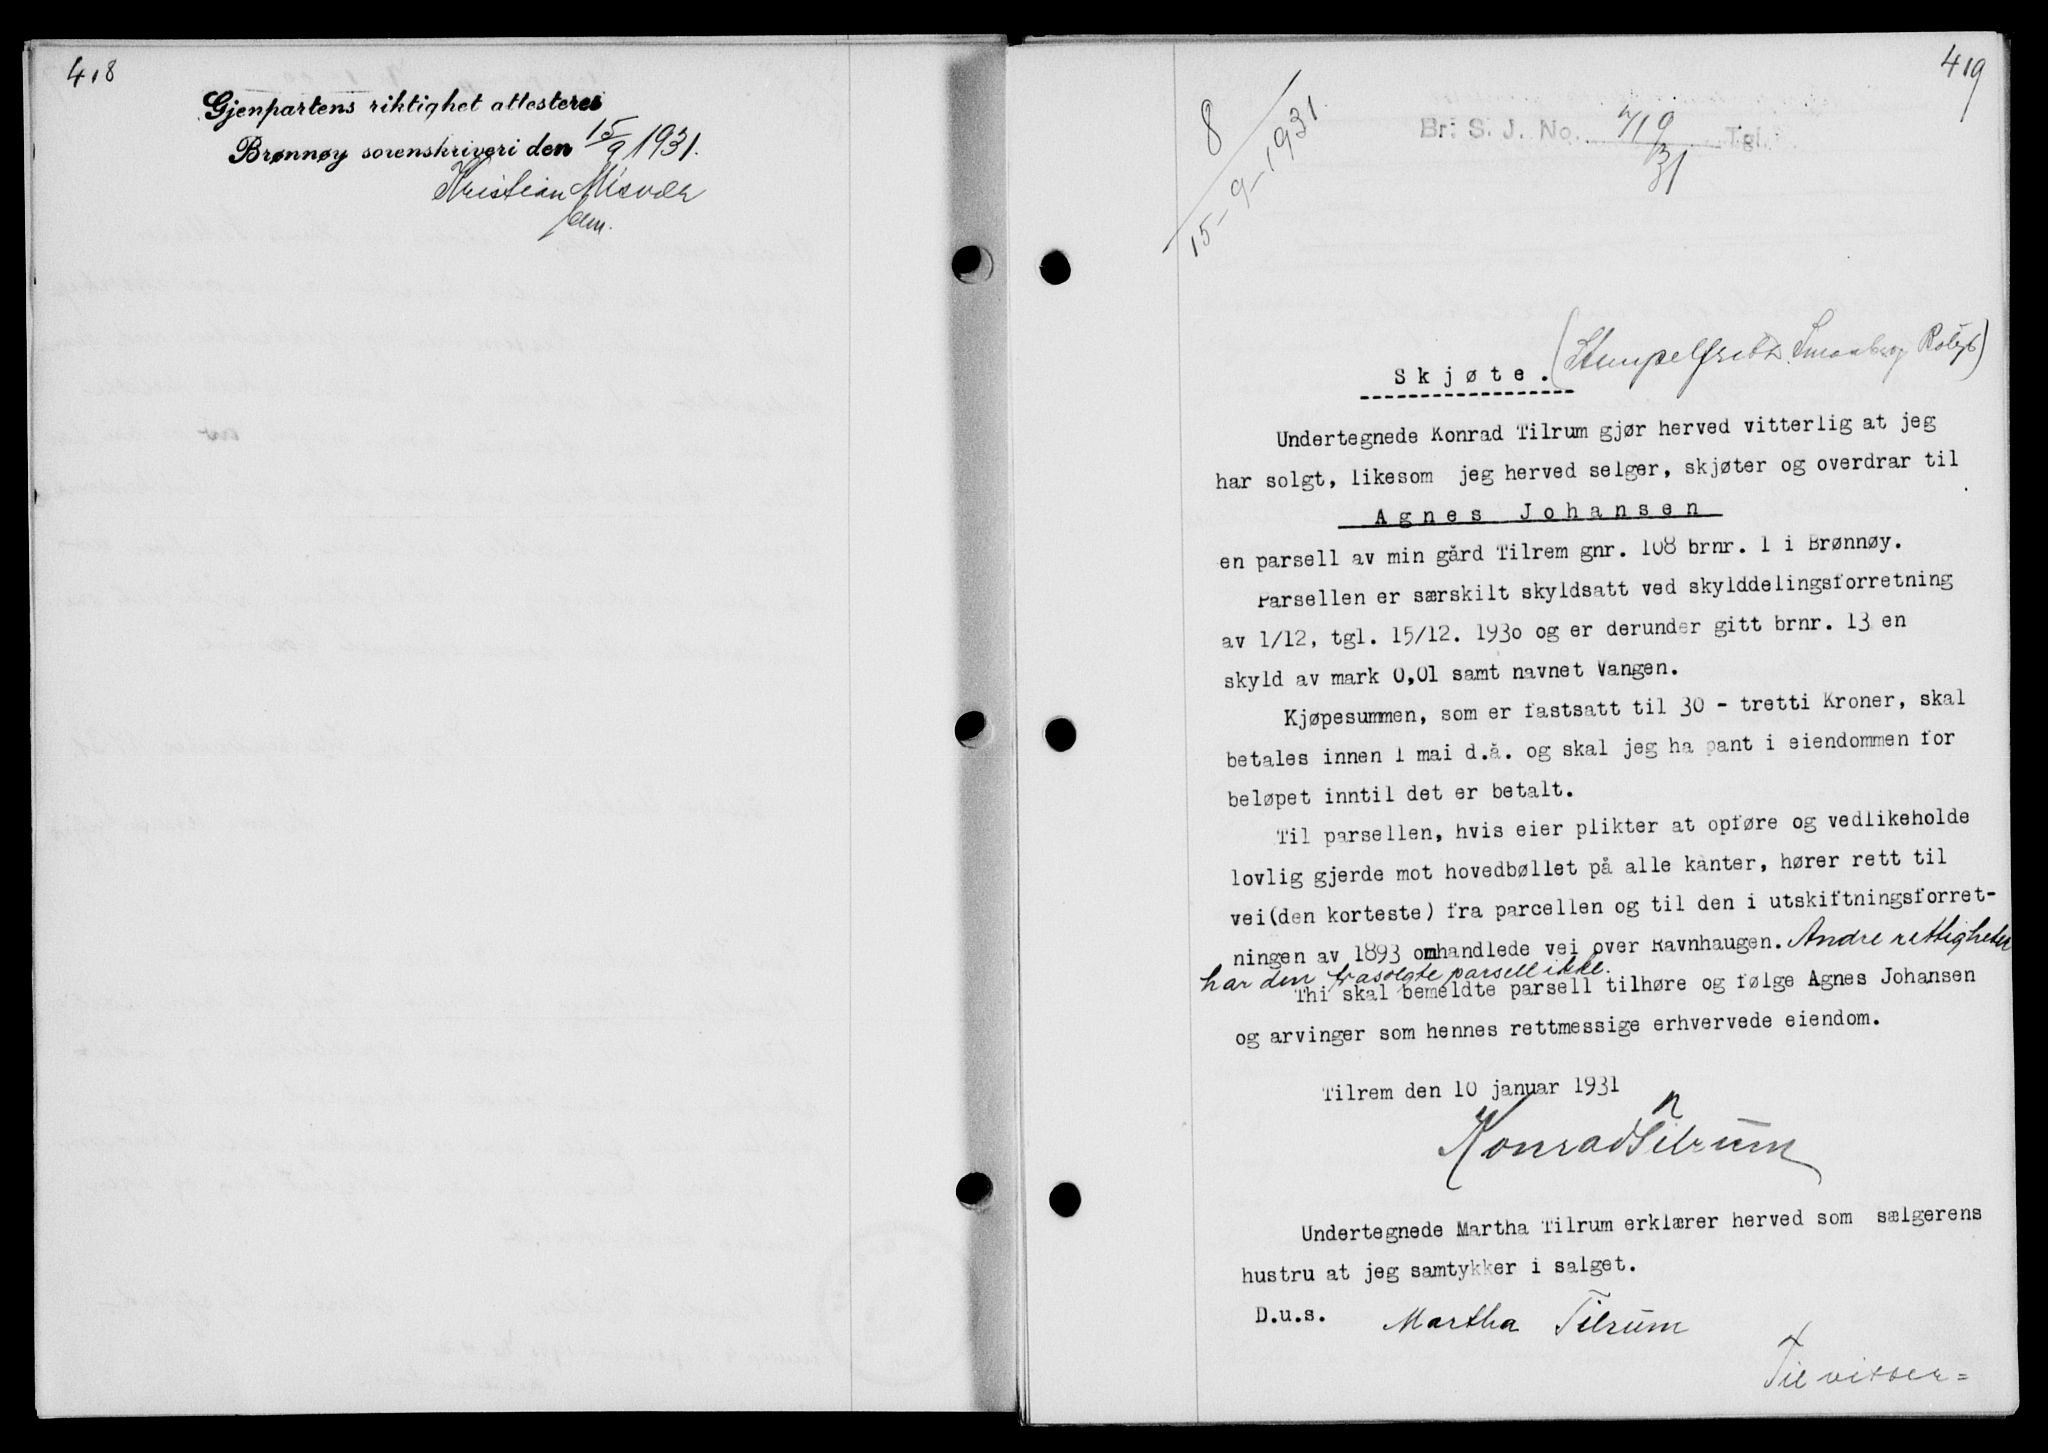 418
Gjenpartens riktighet attesteres
Brønnøy sorenskriveri den 15/9 1931.
Kristian Misvær
419
8
15-9-1931.
Br: S. J. No. 719/31 Tgl.
(Stempelfritt. Småbruk. Boligt)
Skjøte.
Undertegnede Konrad Tilrum gjør herved vitterlig at jeg
har solgt, likesom jeg herved selger, skjøter og overdrar til
Agnes Johansen
en parsell av min gård Tilrem gnr. 108 brnr. 1 i Brønnøy.
Parsellen er særskilt skyldsatt ved skylddelingsforretning
av 1/12, tgl. 15/12. 1930 og er derunder gitt brnr. 13 en
skyld av mark 0,01 samt navnet Vangen.
Kjøpesummen, som er fastsatt til 30 - tretti Kroner, skal
betales innen 1 mai d.å. og skal jeg ha pant i eiendommen for
beløpet inntil det er betalt.
Til parsellen, hvis eier plikter at opføre og vedlikeholde
lovlig gjerde mot hovedbøllet på alle kanter, hører rett til
vei(den korteste) fra parcellen og til den i utskiftningsforret-
ningen av 1893 omhandlede vei over Ravnhaugen. Andre rettigheter
har den frasolgte parsell ikke.
Thi skal bemeldte parsell tilhøre og følge Agnes Johansen
og arvinger som hennes rettmessige erhvervede eiendom.
Tilrem den 10 januar 1931
Konrad Tilrum
Undertegnede Martha Tilrum erklærer herved som sælgerens
hustru at jeg samtykker i salget.
D.u.s. Martha Tilrum
Til vitter=